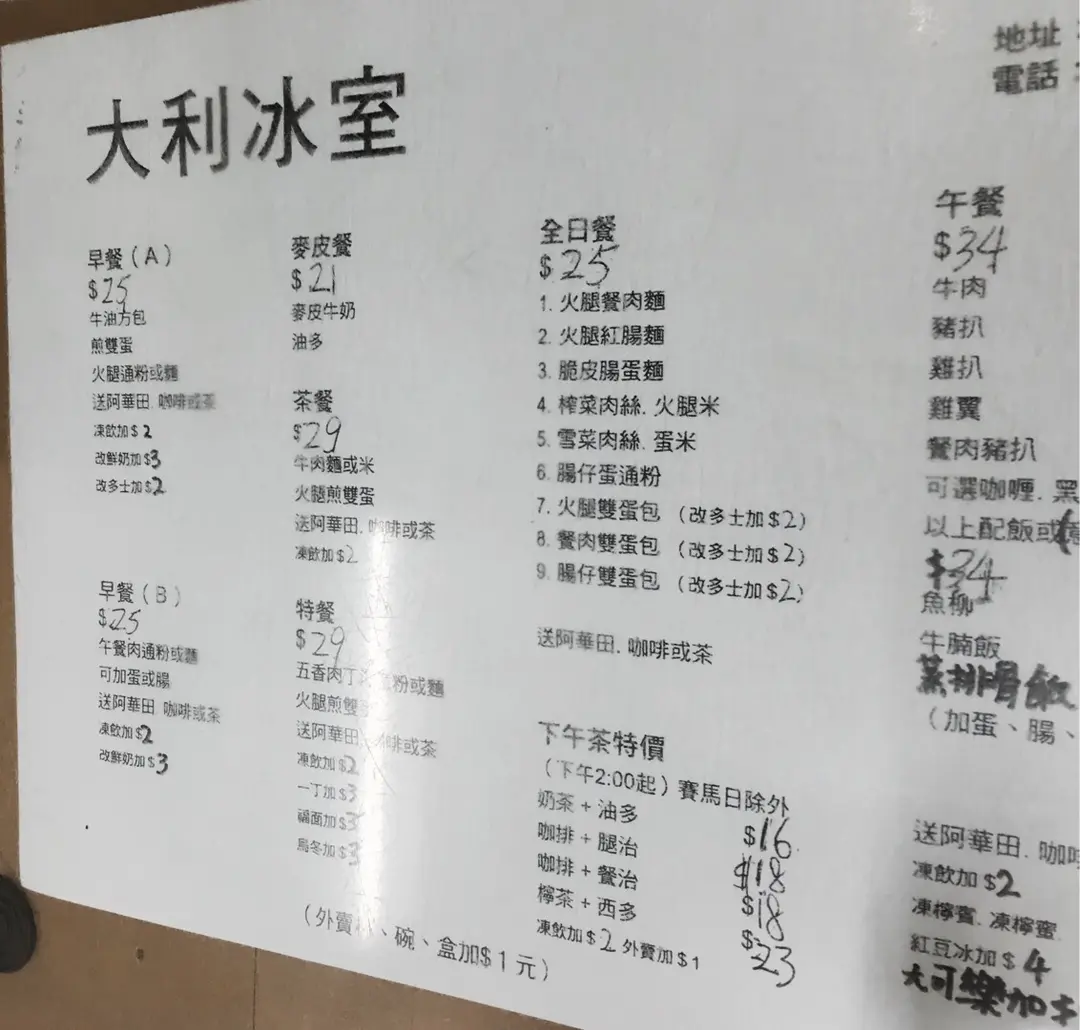 大利冰室
早餐（A）
$25
牛油方包
煎雙蛋
火腿通粉或麵
送阿華田. 咖啡或茶
凍飲加$2
改鮮奶加$3
改多士加$2
早餐（B）
$25
午餐肉通粉或麵
可加蛋或腸
送阿華田 咖啡或茶
凍飲加$2
改鮮奶加$3
麥皮餐
$21
麥皮牛奶
油多
茶餐
$29
牛肉麵或米
火腿煎雙蛋
送阿華田. 咖啡或茶
凍飲加$2
特餐
$29
五香肉丁 粉或麵
火腿煎雙
送阿華田 啡或茶
凍飲加$2
一丁加$3
福面加$3
烏冬加$3
全日餐
$25
1. 火腿餐肉麵
2. 火腿紅腸麵
3. 脆皮腸蛋麵
4. 榨菜肉絲. 火腿米
5. 雪菜肉絲. 蛋米
6. 腸仔蛋通粉
7. 火腿雙蛋包 （改多士加$2）
8. 餐肉雙蛋包 （改多士加$2）
9. 腸仔雙蛋包 （改多士加$2）
送阿華田. 咖啡或茶
下午茶特價
（下午2:00起）賽馬日除外
奶茶 + 油多 $16
咖啡 + 腿治 $18
咖啡 + 餐治 $18
檸茶 + 西多 $23
凍飲加$2 外賣加$1
（外賣 、碗、盒加$1元）
地址：
電話：
午餐
$34
牛肉
豬扒
雞扒
雞翼
餐肉豬扒
可選咖喱. 黑
以上配飯或意
$34
魚柳
牛腩飯
蒸排骨飯
（加蛋、腸、
送阿華田. 咖啡
凍飲加$2
凍檸賓. 凍檸蜜
紅豆冰加$4
大可樂加